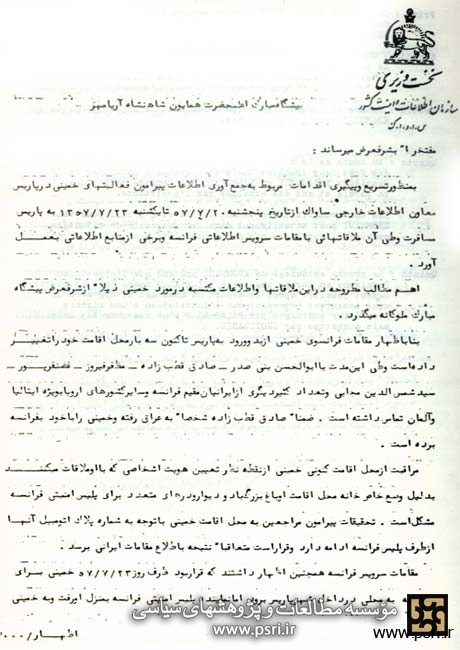 نخست وزیری
سازمان اطلاعات و امنیت کشور
س.ا.و.ا.ک
پیشگاه مبارک اعلیحضرت همایون شاهنشاه آریامهر
مفتخراً بشرفعرض میرساند :
بمنظور تسریع و پیگیری اقدامات مربوط به جمع آوری اطلاعات پیرامون فعالیتهای خمینی در پاریس
معاون اطلاعات خارجی ساواک از تاریخ پنجشنبه ۵۷/۷/۲۰ تا یکشنبه ۱۳۵۷/۷/۲۳ به پاریس
مسافرت وطی آن ملاقاتهائی با مقامات سرویس اطلاعاتی فرانسه وبرخی از منابع اطلاعاتی بعمل
آورد .
اهم مطالب مطروحه در این ملاقاتها واطلاعات مکتسبه در مورد خمینی ذیلاً از شرفعرض پیشگاه
مبارک ملوکانه میگذرد .
بنا باظهار مقامات فرانسوی خمینی از بدو ورود به پاریس تاکنون سه بار محل اقامت خود را تغییر
داده است وطی این مدت با ابوالحسن بنی صدر ـ صادق قطب زاده ـ مظفر فیروز ـ غضنفرپور ـ
سید شمس الدین مجابی وتعداد کثیر دیگری از ایرانیان مقیم فرانسه وسایر کشورهای اروپا بویژه ایتالیا
وآلمان تماس داشته است . ضمناً صادق قطب زاده شخصاً به عراق رفته وخمینی را با خود بفرانسه
برده است .
مراقبت از محل اقامت کنونی خمینی از نقطه نظر تعیین هویت اشخاصی که با او ملاقات میکنند
بدلیل وضع خاص خانه محل اقامت او باغ بزرگ و دیوار و درهای متعدد برای پلیس امنیتی فرانسه
مشکل است . تحقیقات پیرامون مراجعین به محل اقامت خمینی با توجه به شماره پلاک اتومبیل آنها
از طرف پلیس فرانسه ادامه دارد وقرار است متعاقباً نتیجه باطلاع مقامات ایرانی برسد .
مقامات سرویس فرانسه همچنین اظهار داشتند که قرار بود ظرف روز ۵۷/۷/۲۳ خمینی برای
به محلی در داخل شهر پاریس برود پلیس امنیتی فرانسه بمنزل او رفت وبه خمینی
اظهار/۰۰۰
مؤسسه مطالعات و پژوهشهای سیاسی
www.psri.ir
www.psri.ir